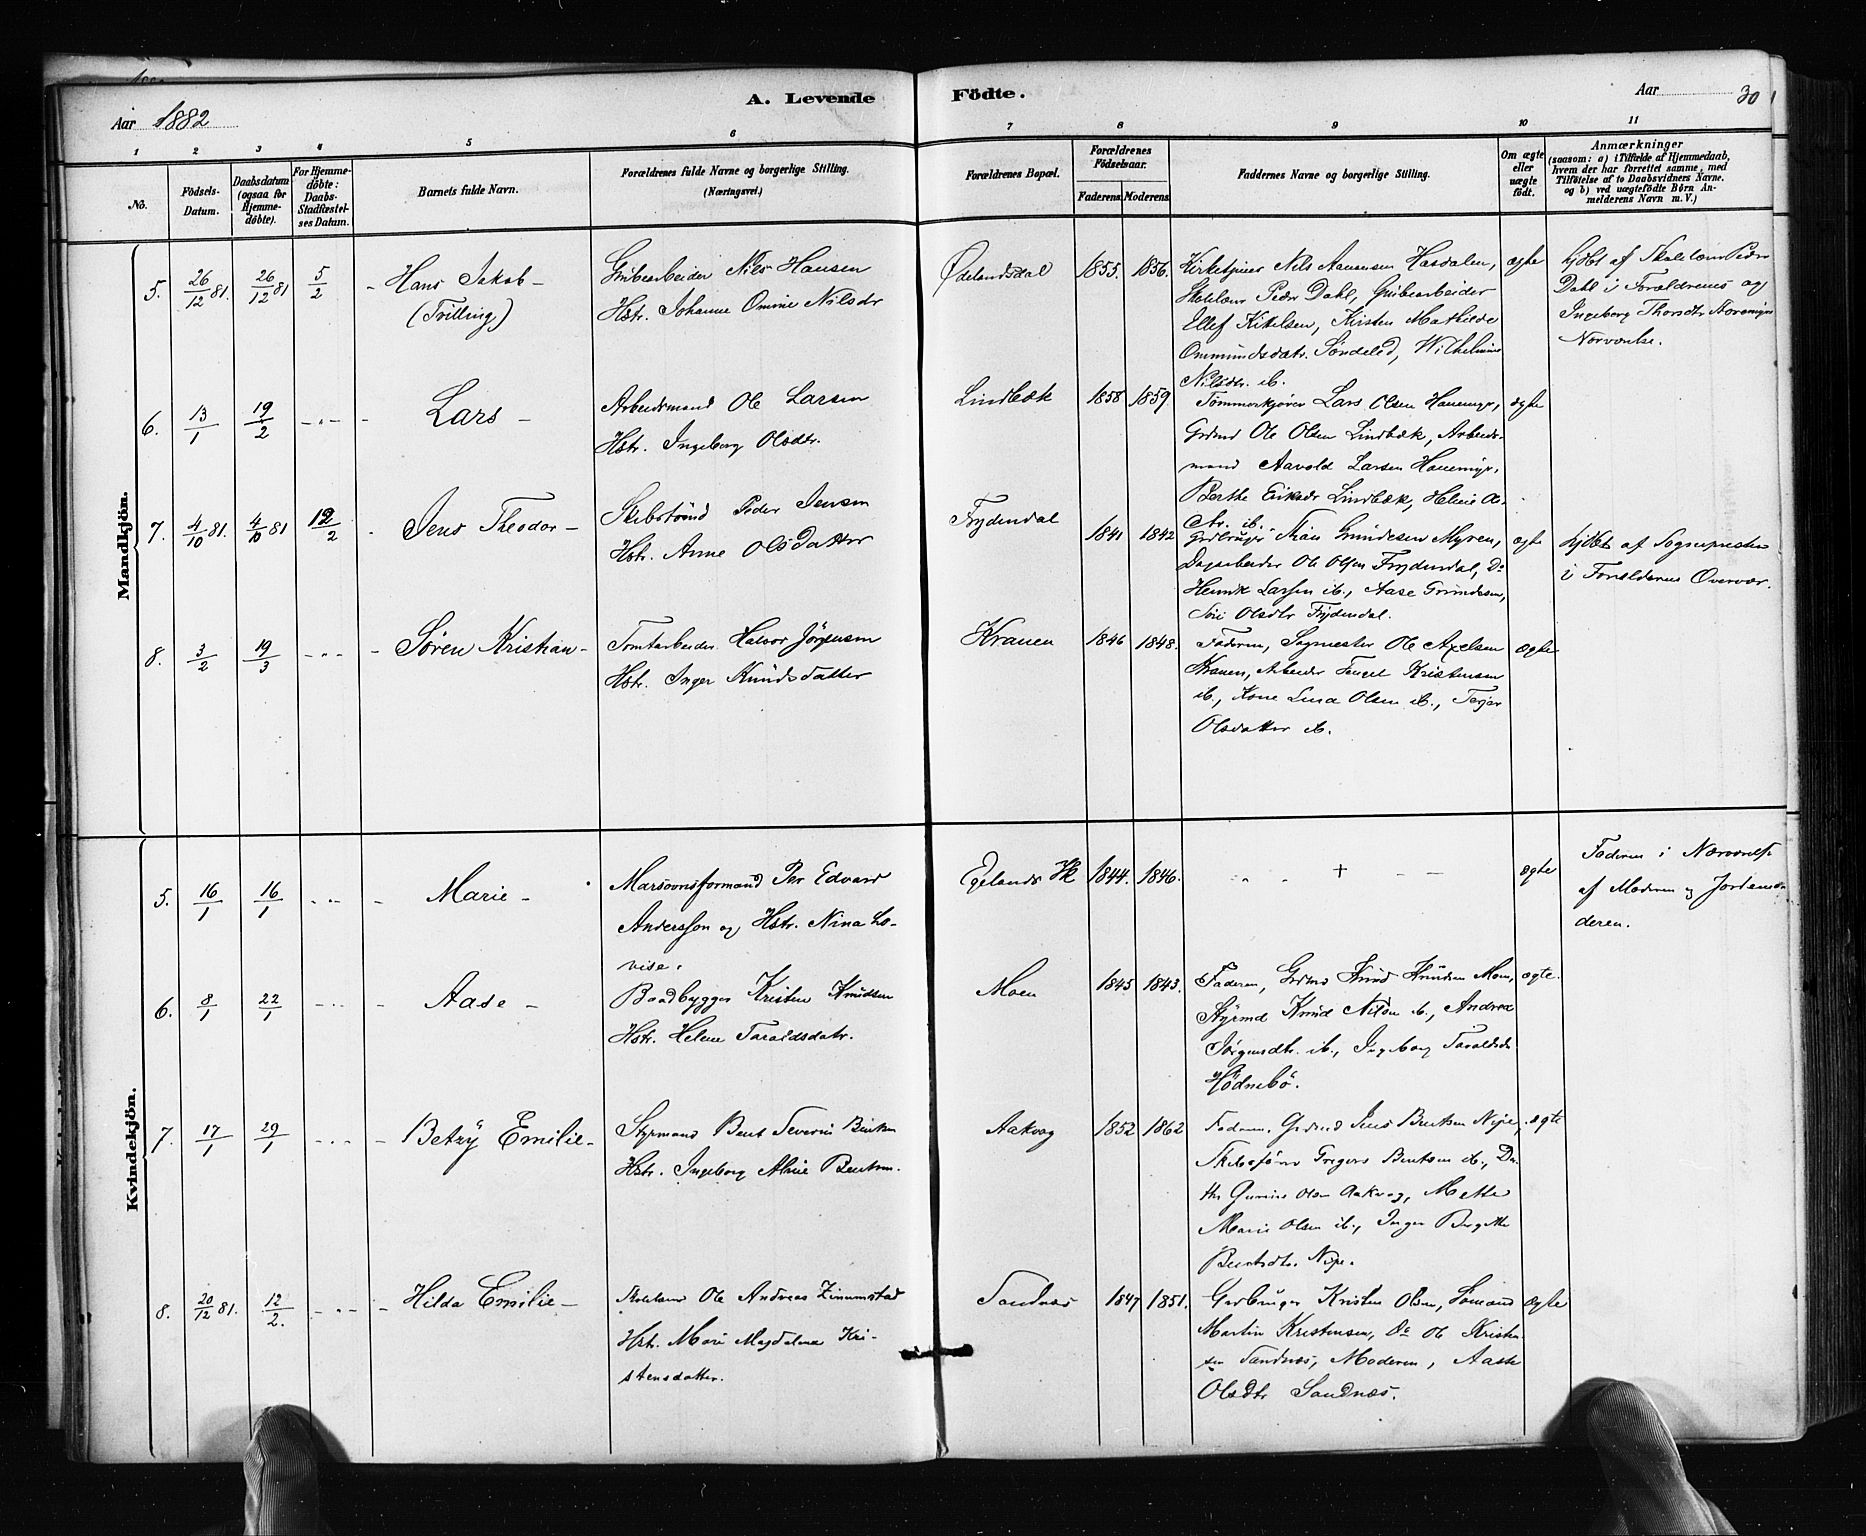 Aar 1882
A. Levende
Födte.
Aar
30
1 2 3 4 5 6 7 8 9 10 11
No.
Födsels-Datum.
Daabsdatum (ogsaa for Hjemme-döbte).
For Hjemme-döbte: Daabs-Stadfæstel-ses Datum.
Barnets fulde Navn.
Forældrenes fulde Navne og borgerlige Stilling. (Næringsvei.)
Forældrenes Bopæl.
Forældrenes Födselsaar.
Faderens Moderens
Faddernes Navne og borgerlige Stilling.
Om ægte eller uægte födt.
Anmærkninger
(saasom: a) i Tilfælde af Hjemmedaab,
hvem der har forrettet samme, med
Tilföielse af to Daabsvidners Navne,
og b) ved uægtefödte Børn An-
melderens Navn m. V.)
Mandkjön.
5. 26/12 81. 26/12 81 5/2 - Hans Jakob -
(Tvilling)
Grubearbeider Nils Hansen
Hstr. Johanne Omine Nilsdr
Øxelandsdal 1855. 1856.
Kirketjener Nils Aanensen Hasdalen,
Skolelær Peder Dahl, Grubearbeider
Ellef Kittelsen, Kirsten Mathilde
Ommundsdatr. Söndeled, Wilhelmine
Nilsdtr. ib.
ægte
hjdbt af Skolelærer Peder
Dahl i Forældrenes og
Ingeborg Thorsdtr
Nærværelse.
6. 13/1 19/2 - " - - Lars -
Arbeidsmand Ole Larsen
Hstr. Ingeborg Olsdtr.
Lindbæk 1858 1859
Tømmerkjører Lars Olsen Hanemyr,
Grdmd Ole Olsen Lindbæk, Arbeids-
mand Aavold Larsen Hanemyr,
Berthe Eriksdr Lindbæk, Helene
ib.
ægte
7. 4/10 81. 4/10 81 12/2 - Jens Theodor -
Skibstömd Peder Jensen
Hstr. Anne Olsdatter
Frydendal 1841 1842
Grdbruger Grundesen Myren,
Dagarbeider Ole Olsen Frydendal, Do
Henrik Larsen ib., Aase Grundesen,
Siri Olsdtr Frydendal.
ægte
hjdbt af Sognepresten
i Forældrenes Overvær.
8. 3/2 19/3 - " - - Søren Kristian -
Tomtarbeider Halvor Jörgensen
Hstr. Inger Knudsdatter
Kranen 1846 1848.
Faderen, Sagmester Ole Axelsen
Kranen, Arbeider Tengel Kristensen
ib., Kone Lina Olsen ib., Terjer
Olsdatter ib.
ægte
Kvindekjön.
5. 16/1 16/1 - " - - Marie -
Masovnsformand Per Edvard
Andersson og Hstr. Nina Lo-
vise.
Egelands Vk 1844. 1846.
" " + - -
ægte
Faderen i Nærværelse
af Moderen og Jordemo-
deren.
6. 8/1 22/1 - " - - Aase -
Baadbygger Kristen Knudsen
Hstr. Helene Taraldsdatr.
Moen 1845 1843.
Faderen, Grdmd Knud Knudsen Moen,
Styrmd Knud Nilsen ib., Andrea
Jörgensdtr. ib., Ingeborg Taraldsdr
Hödnebö.
ægte.
7. 17/1 29/1 - " - - Betzy Emilie -
Styrmand Bent Severin Bentsen
Hstr. Ingeborg Bentsen.
Aakvag 1852 1862
Faderen, Grdmd Jens Bentsen Nipe,
Skibsfører Gregers Bentsen ib., Dat-
ter Gurine Olsen Aakvag, Mette
Marie Olsen ib., Inger Birgitte
Bentsdtr. Nipe.
ægte
8. 20/12 81. 12/2. - " - - Hilda Emilie -
Skolelærer Ole Andreas Zinnumstad
Hstr. Mari Magdalena Kri-
stensdatter.
Sandnæs 1847 1851.
Grdbruger Kristen Olsen, Sömand
Martin Kristensen, Do Ole Kristen-
sen Sandnæs, Moderen, Aaste
Olsdtr Sandnæs.
ægte